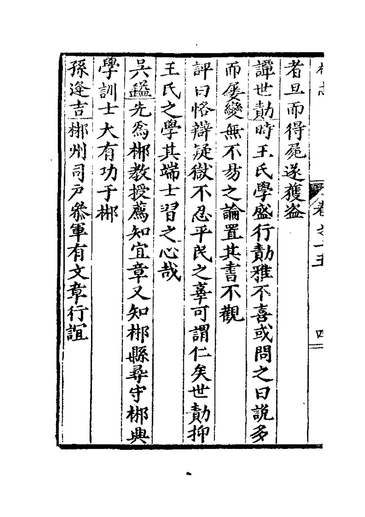 卷之十五
四
者旦而得屍遂獲盜
譚世勣時王氏學盛行勣雅不喜或問之曰說多
而屢變無不易之論置其書不觀
評曰恪辯疑獄不忍平民之辜可謂仁矣世勣抑
王氏之學其端士習之心哉
吳鎰先為郴教授薦知宜章又知郴縣尋守郴興
學訓士大有功于郴
孫逢吉郴州司戶叅軍有文章行誼